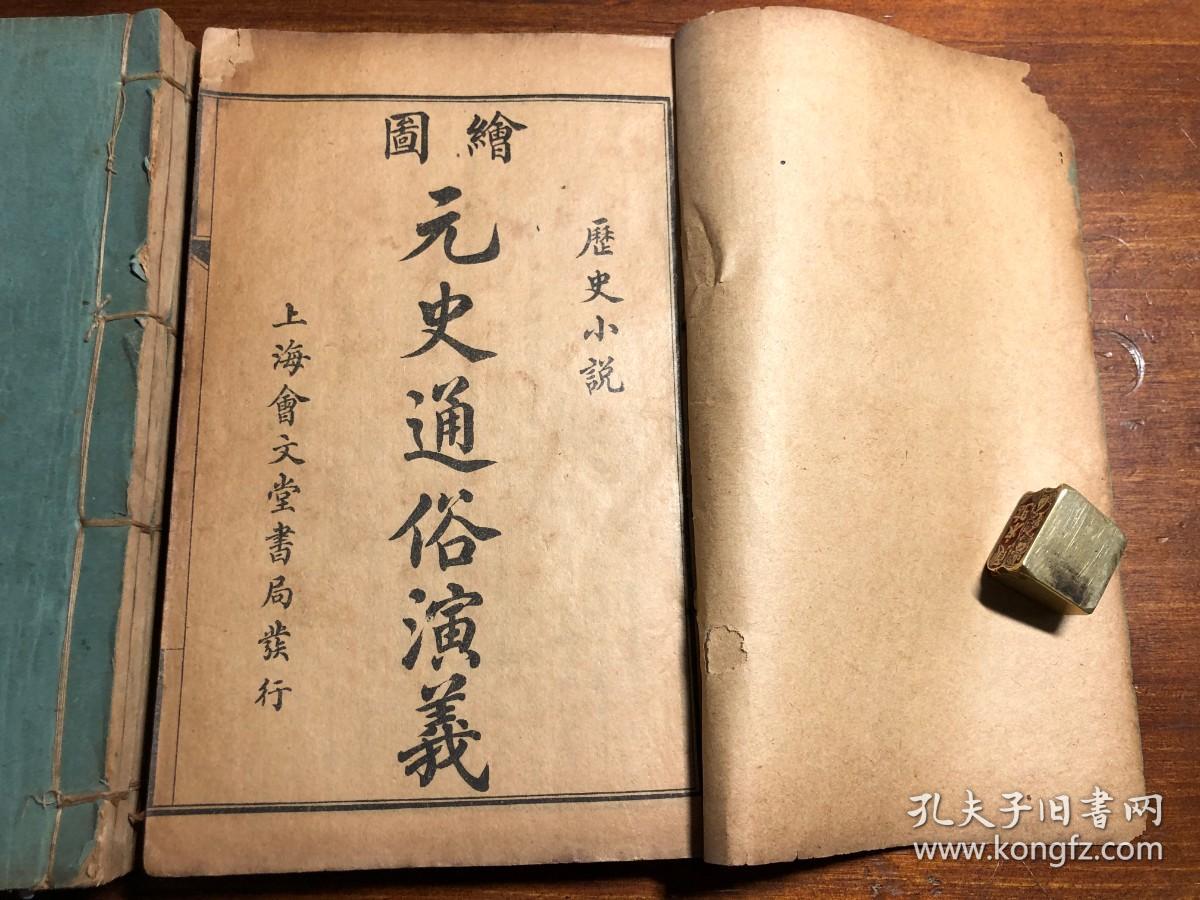 歷史小説
繪圖
元史通俗演義
上海會文堂書局發行
孔夫子旧书网
www.kongfz.com